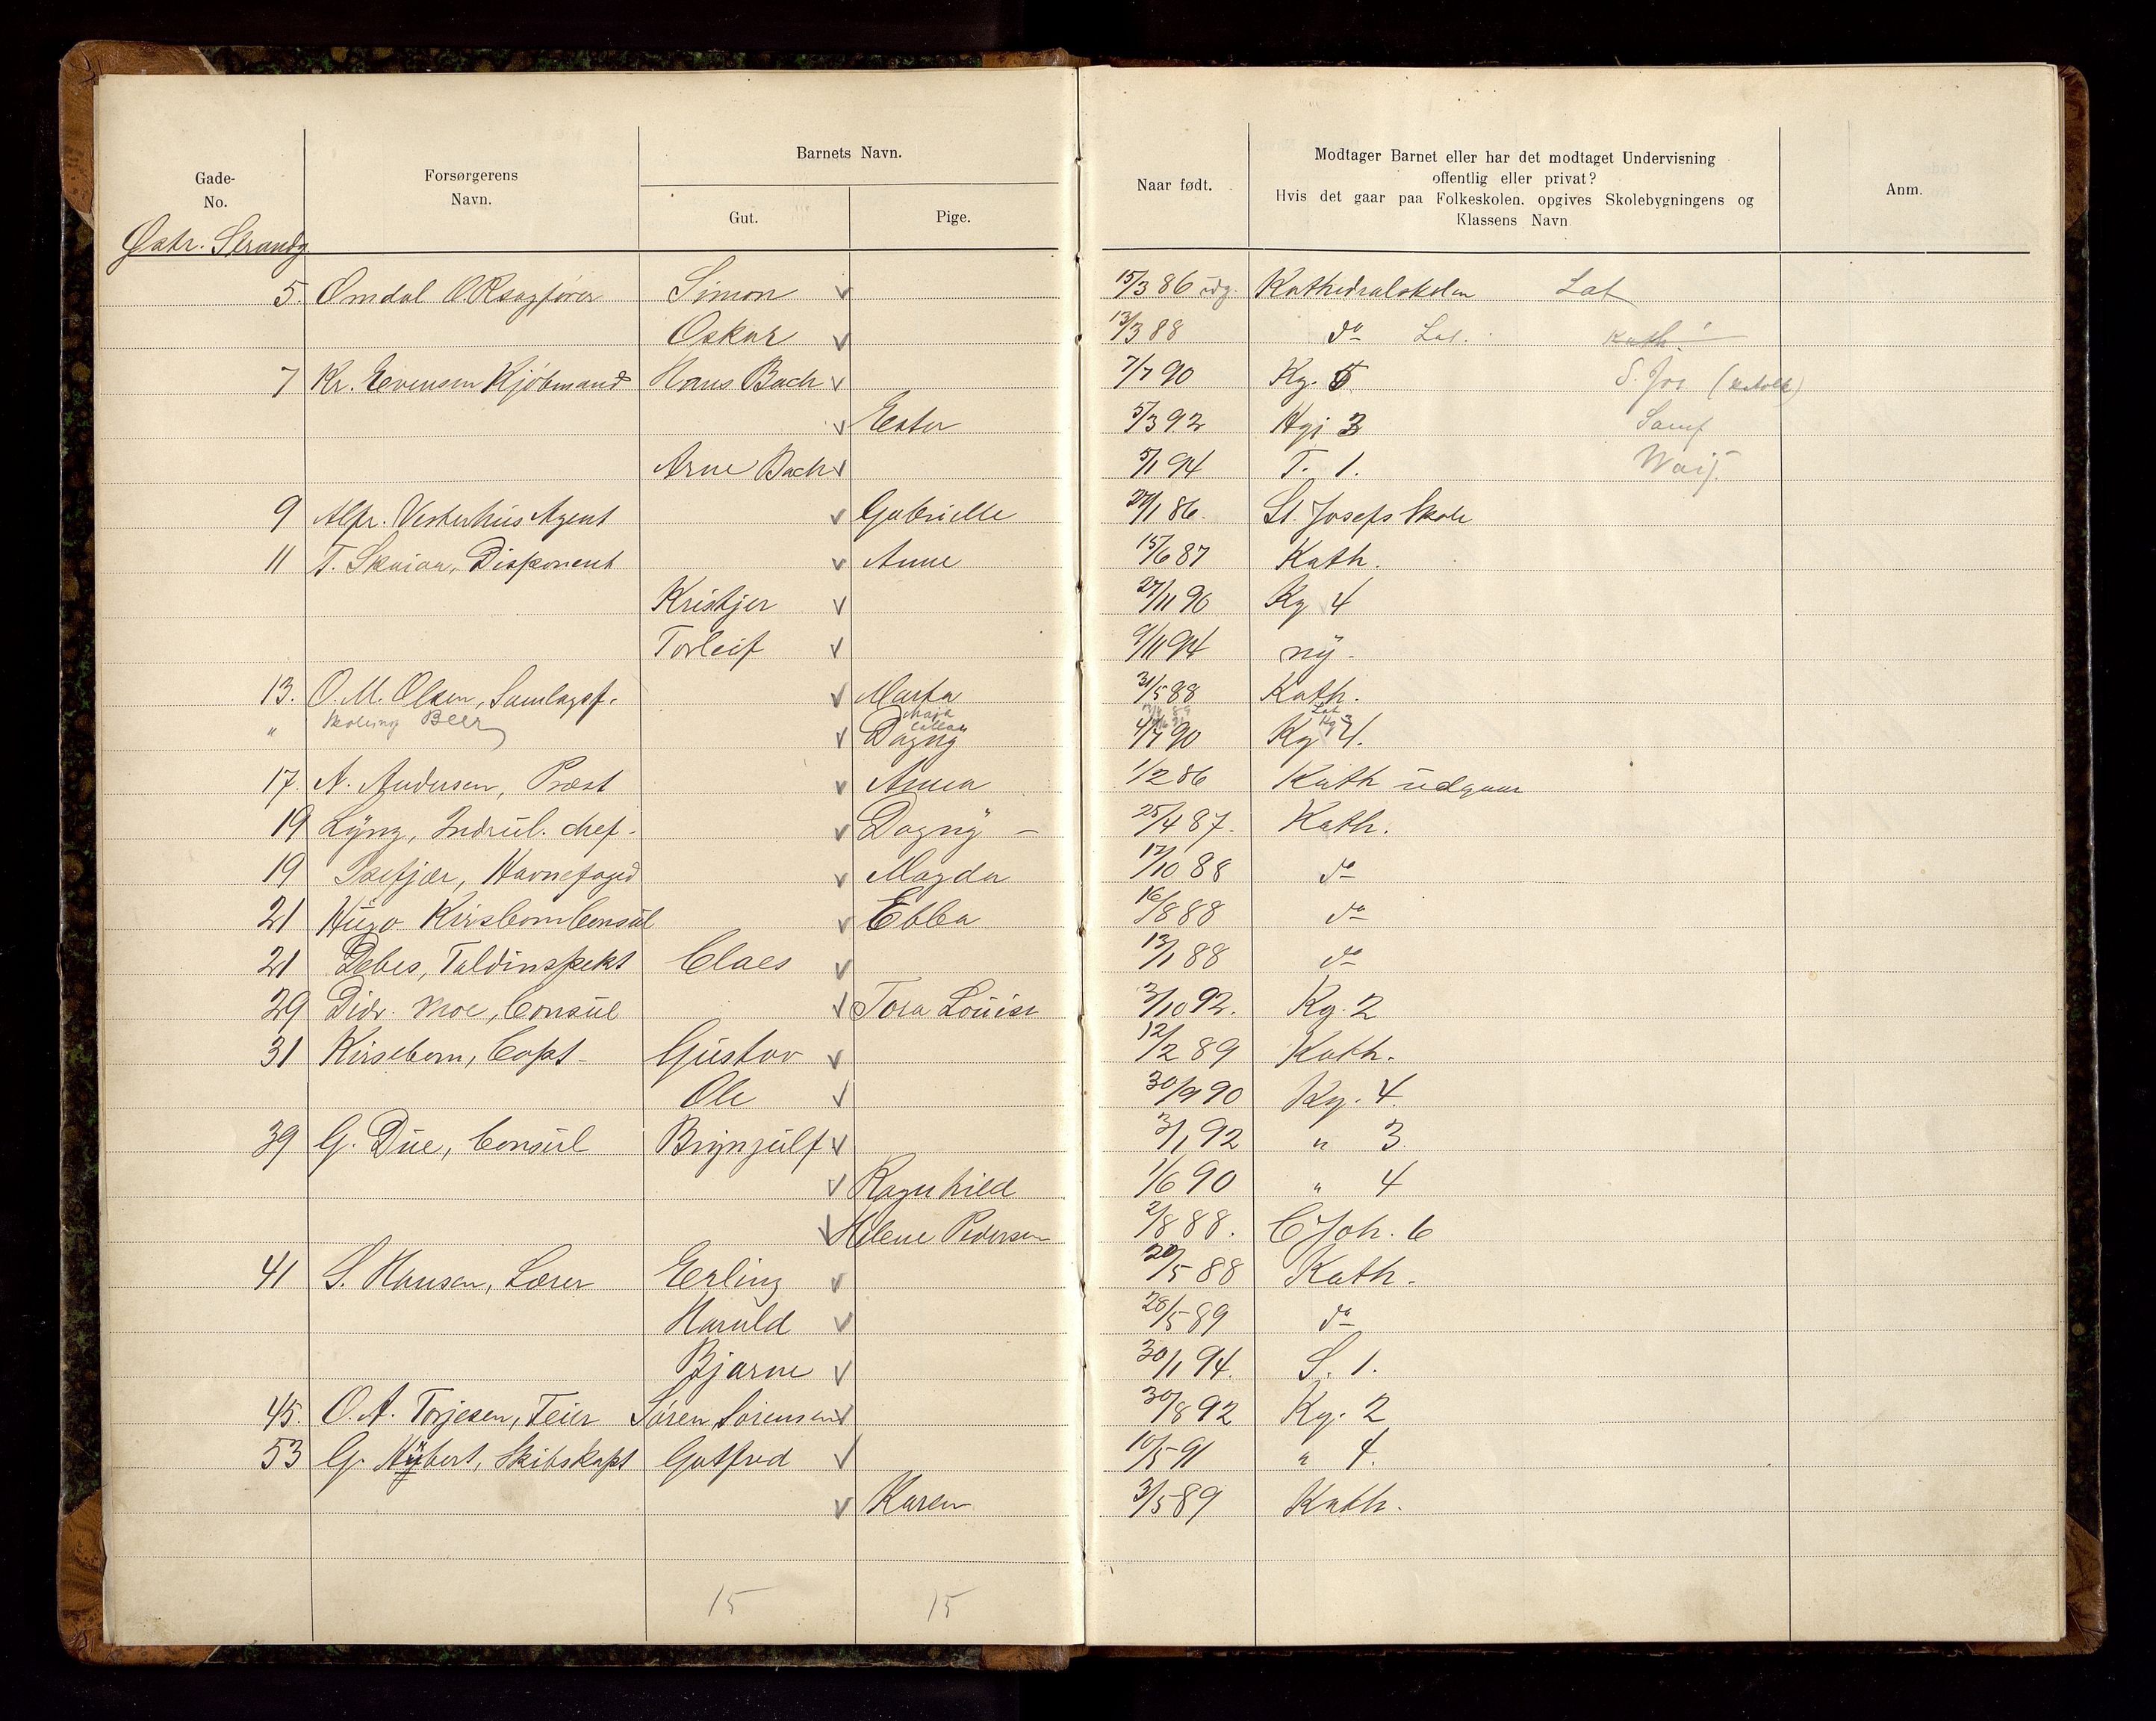 Gade-
No.
Forsørgerens
Navn.
Barnets Navn.
Gut.
Pige.
Naar født.
Modtager Barnet eller har det modtaget Undervisning
offentlig eller privat?
Hvis det gaar paa Folkeskolen, opgives Skolebygningens og
Klassens Navn
Anm.
Østr. Strandg
5. Omdal O.R.sagfører Simon 15/3 86 udg. Kathedralskolen Lat
Oskar 13/3 88 do Lat. Kath.
7 Kr. Evensen Kjøbmand Hans Bach 7/7 90 Kg. 5 S. Jos (katolk)
Ester 5/3 92 Hgj 3 Samf
Arne Bach 5/1 94 T. 1. Wais.
9 Alfr. Vesterhus Agent Gabrielle 27/1 86. St. Josefs Skole
11 T. Disponent Anne 15/6 87 Kath.
Kristjer 27/11 90 Kg 4
Torleif 9/11 94 ny.
13. O. M. Olsen, Samlagsf. Marta 31/5 88 Kath.
" Skoleinsp Beer Maja Lat
Dagny 4/7 90 Kg 4.
17. A. Andersen, Præst Anna 1/2 86 Kath udgaar
19 Lyng, Indrul. chef. Dagny – 25/4 87. Kath.
19 Isefjær, Havnefoged Magda 17/10 88 do
21 Hugo Kirsebom Consul Ebba 16/8 88 do
21 Debes, Toldinspekt Claes 13/1 88 do
29 Didr. Moe, Consul Tora Louise 3/10 92. Kg. 2
31 Kirsebom, Capt. Gustav 12/2 89 Kath.
Ole 30/9 90 Kg. 4
39 G. Due, Consul Brynjulf 3/1 92 " 3
Ragnhild 1/6 90 " 4
Helene Pedersen 2/8 88. C Joh. 6
41 S. Hansen, Lærer Erling 20/5 88 Kath.
Harald 28/5 89 do
Bjarne 30/1 94. S. 1.
45. O. A. Torjesen, Feier Søren Sørensen 30/8 92 Kg. 2
53 G. Nybert, Skibskapt Gotfred 10/5 91 " 4.
Karen 3/5 89 Kath.
15 15